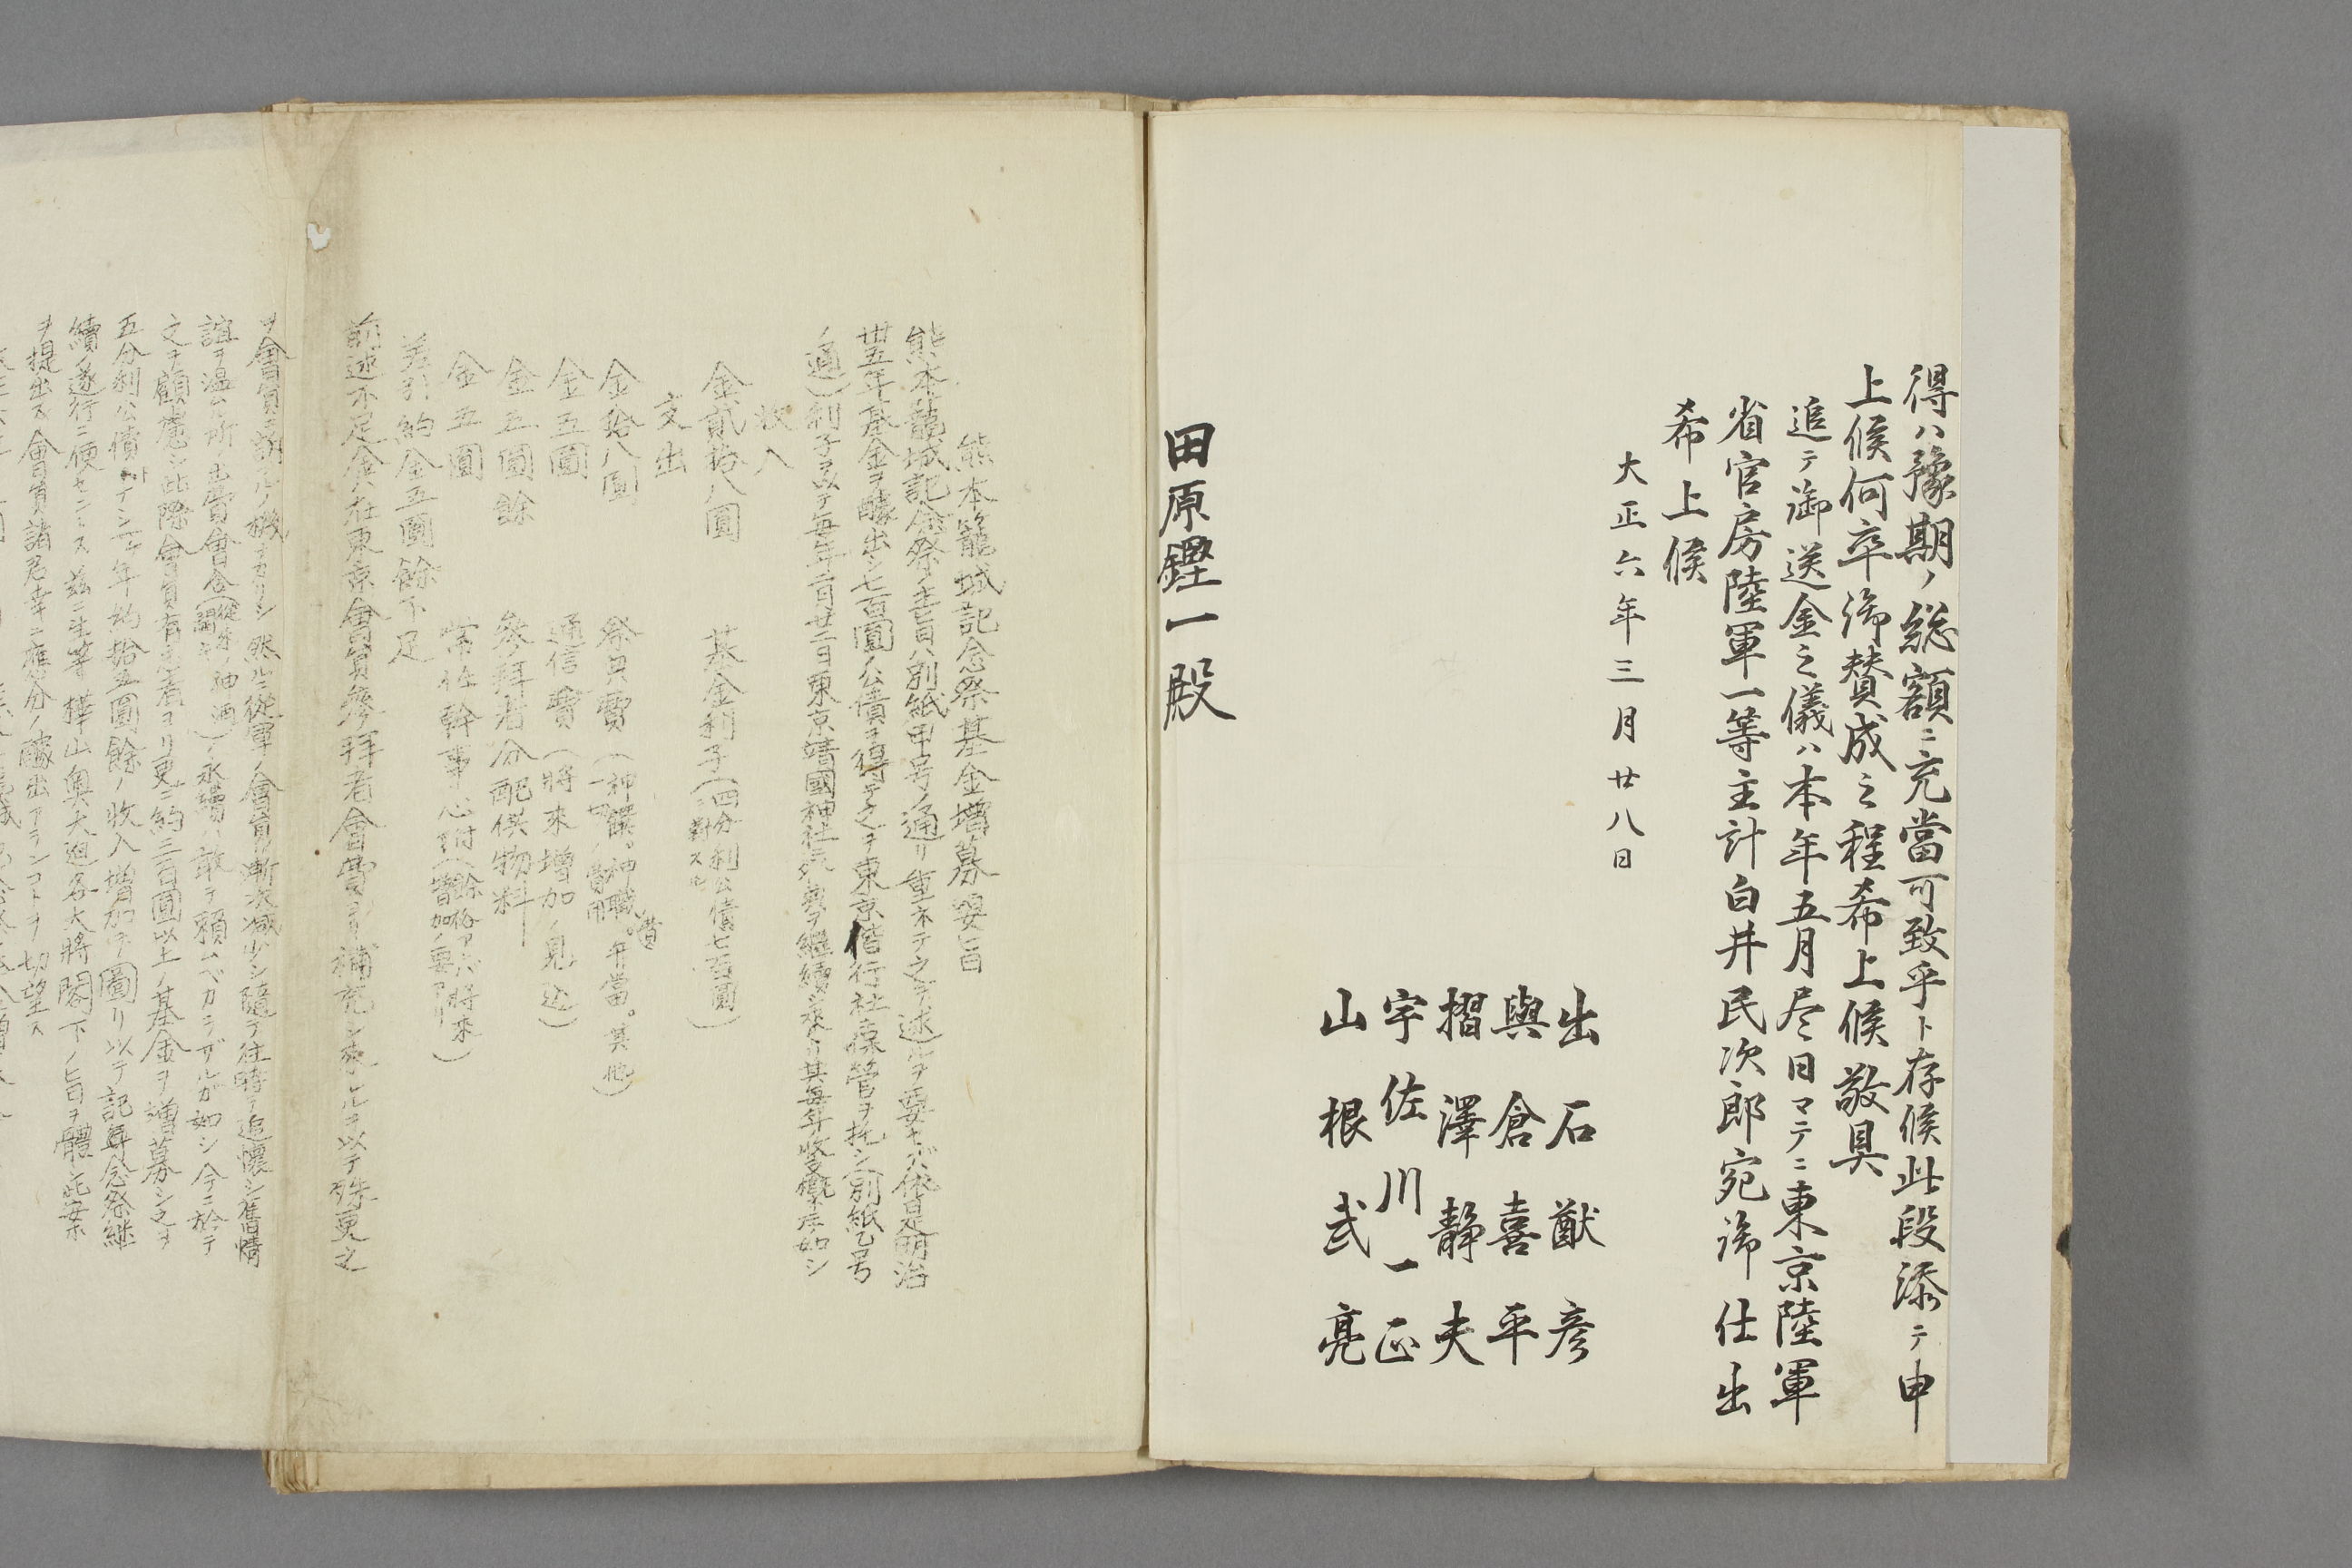 得ハ豫期ノ総額ニ充當可致乎ト存候此段添テ申
上候何卒御賛成之程希上候敬具
追テ御送金之儀ハ本年五月尽日マテニ東京陸軍
省官房陸軍一等主計白井民次郎宛御仕出
希上候
大正六年三月廿八日
出石猷彦
與倉喜平
摺澤静夫
宇佐川一正
山根武亮
田原鏗一殿
熊本籠城記念祭基金増募要旨
熊本籠城記念祭ノ主旨ハ別紙甲号ノ通リ重ネテ之ヲ述ルヲ要セズ依是明治
卅五年基金ヲ醵出シ七百圓ノ公債ヲ得テ之ヲ東京偕行社ニ保管ヲ托シ(別紙乙号
ノ通)利子ヲ以テ毎年二月廿二日東京靖國神社ニ於テ継續シ来リ其毎年ノ收支概ネ左ノ如シ
收入
金貳拾八圓 基金利子(四分利公債七百圓ニ對スル)
支出
金拾八圓 祭典費(神饌。神職。弁當。其他一切ノ費用)
金五圓 通信費(將来増加ノ見込)
金五圓餘 参拜者分配供物料
金五圓 常任幹事心附(餘裕アレバ將来増加ヲ要ス)
差引約金五圓餘不足
前述不足金ハ在東京會員参拜者會費ヨリ補充シ来レルヲ以テ殊更之
ヲ會員ニ謀ルノ機ナカリシ然ルニ從軍ノ會員漸次減少シ随テ往時ヲ追懐シ舊情
誼ヲ温ムル所ノ此會合(從来ノ神酒)ノ永續ハ敢テ頼ムベカラザルガ如シ今ニ於テ
之ヲ顧慮シ此際會員有志者ヨリ更ニ約三百圓以上ノ基金ヲ増募シ之ヲ
五分利公債トナシ年々約拾五圓餘ノ收入増加ヲ圖リ以テ記念祭継
續ノ遂行ニ便セントス茲ニ生等樺山奥大迫各大將閣下ノ旨ヲ體シ此案
ヲ提出ス會員諸君幸ニ應分ノ醵出アランコトヲ切望ス